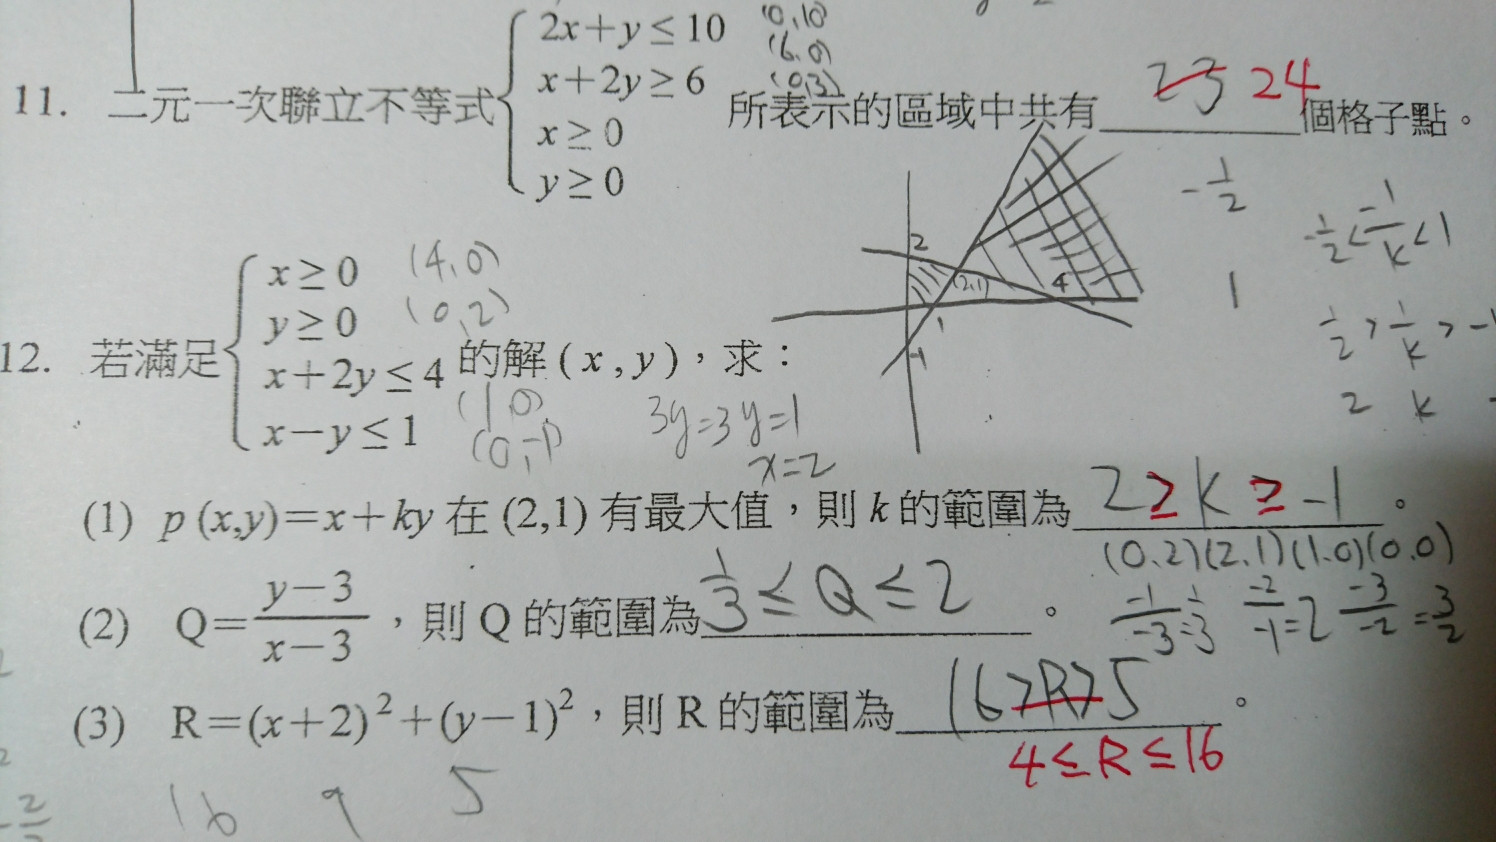 2x+y≤10 (0,10)
x+2y≥6 (6,0)
(0,3)
11. 二元一次聯立不等式 所表示的區域中共有 23 24 個格子點。
x≥0
y≥0
2
(2,1) 4
1
-1
-1/2
-1/2 < -1/k < 1
1
1/2 > 1/k > -1
2 k
x≥0 (4,0)
y≥0 (0,2)
12. 若滿足 x+2y≤4 的解 (x,y),求:
x-y≤1 (1,0)
(0,-1)
3y=3 y=1
x=2
(1) p(x,y)=x+ky 在 (2,1) 有最大值,則 k 的範圍為 2≥k≥-1。
(0.2)(2.1)(1.0)(0.0)
(2) Q=y-3/x-3,則 Q 的範圍為 1/3≤Q≤2。
-1/-3=1/3 -2/-1=2 -3/-2=3/2
(3) R=(x+2)²+(y-1)²,則 R 的範圍為 16>R>5。
4≤R≤16
16 9 5